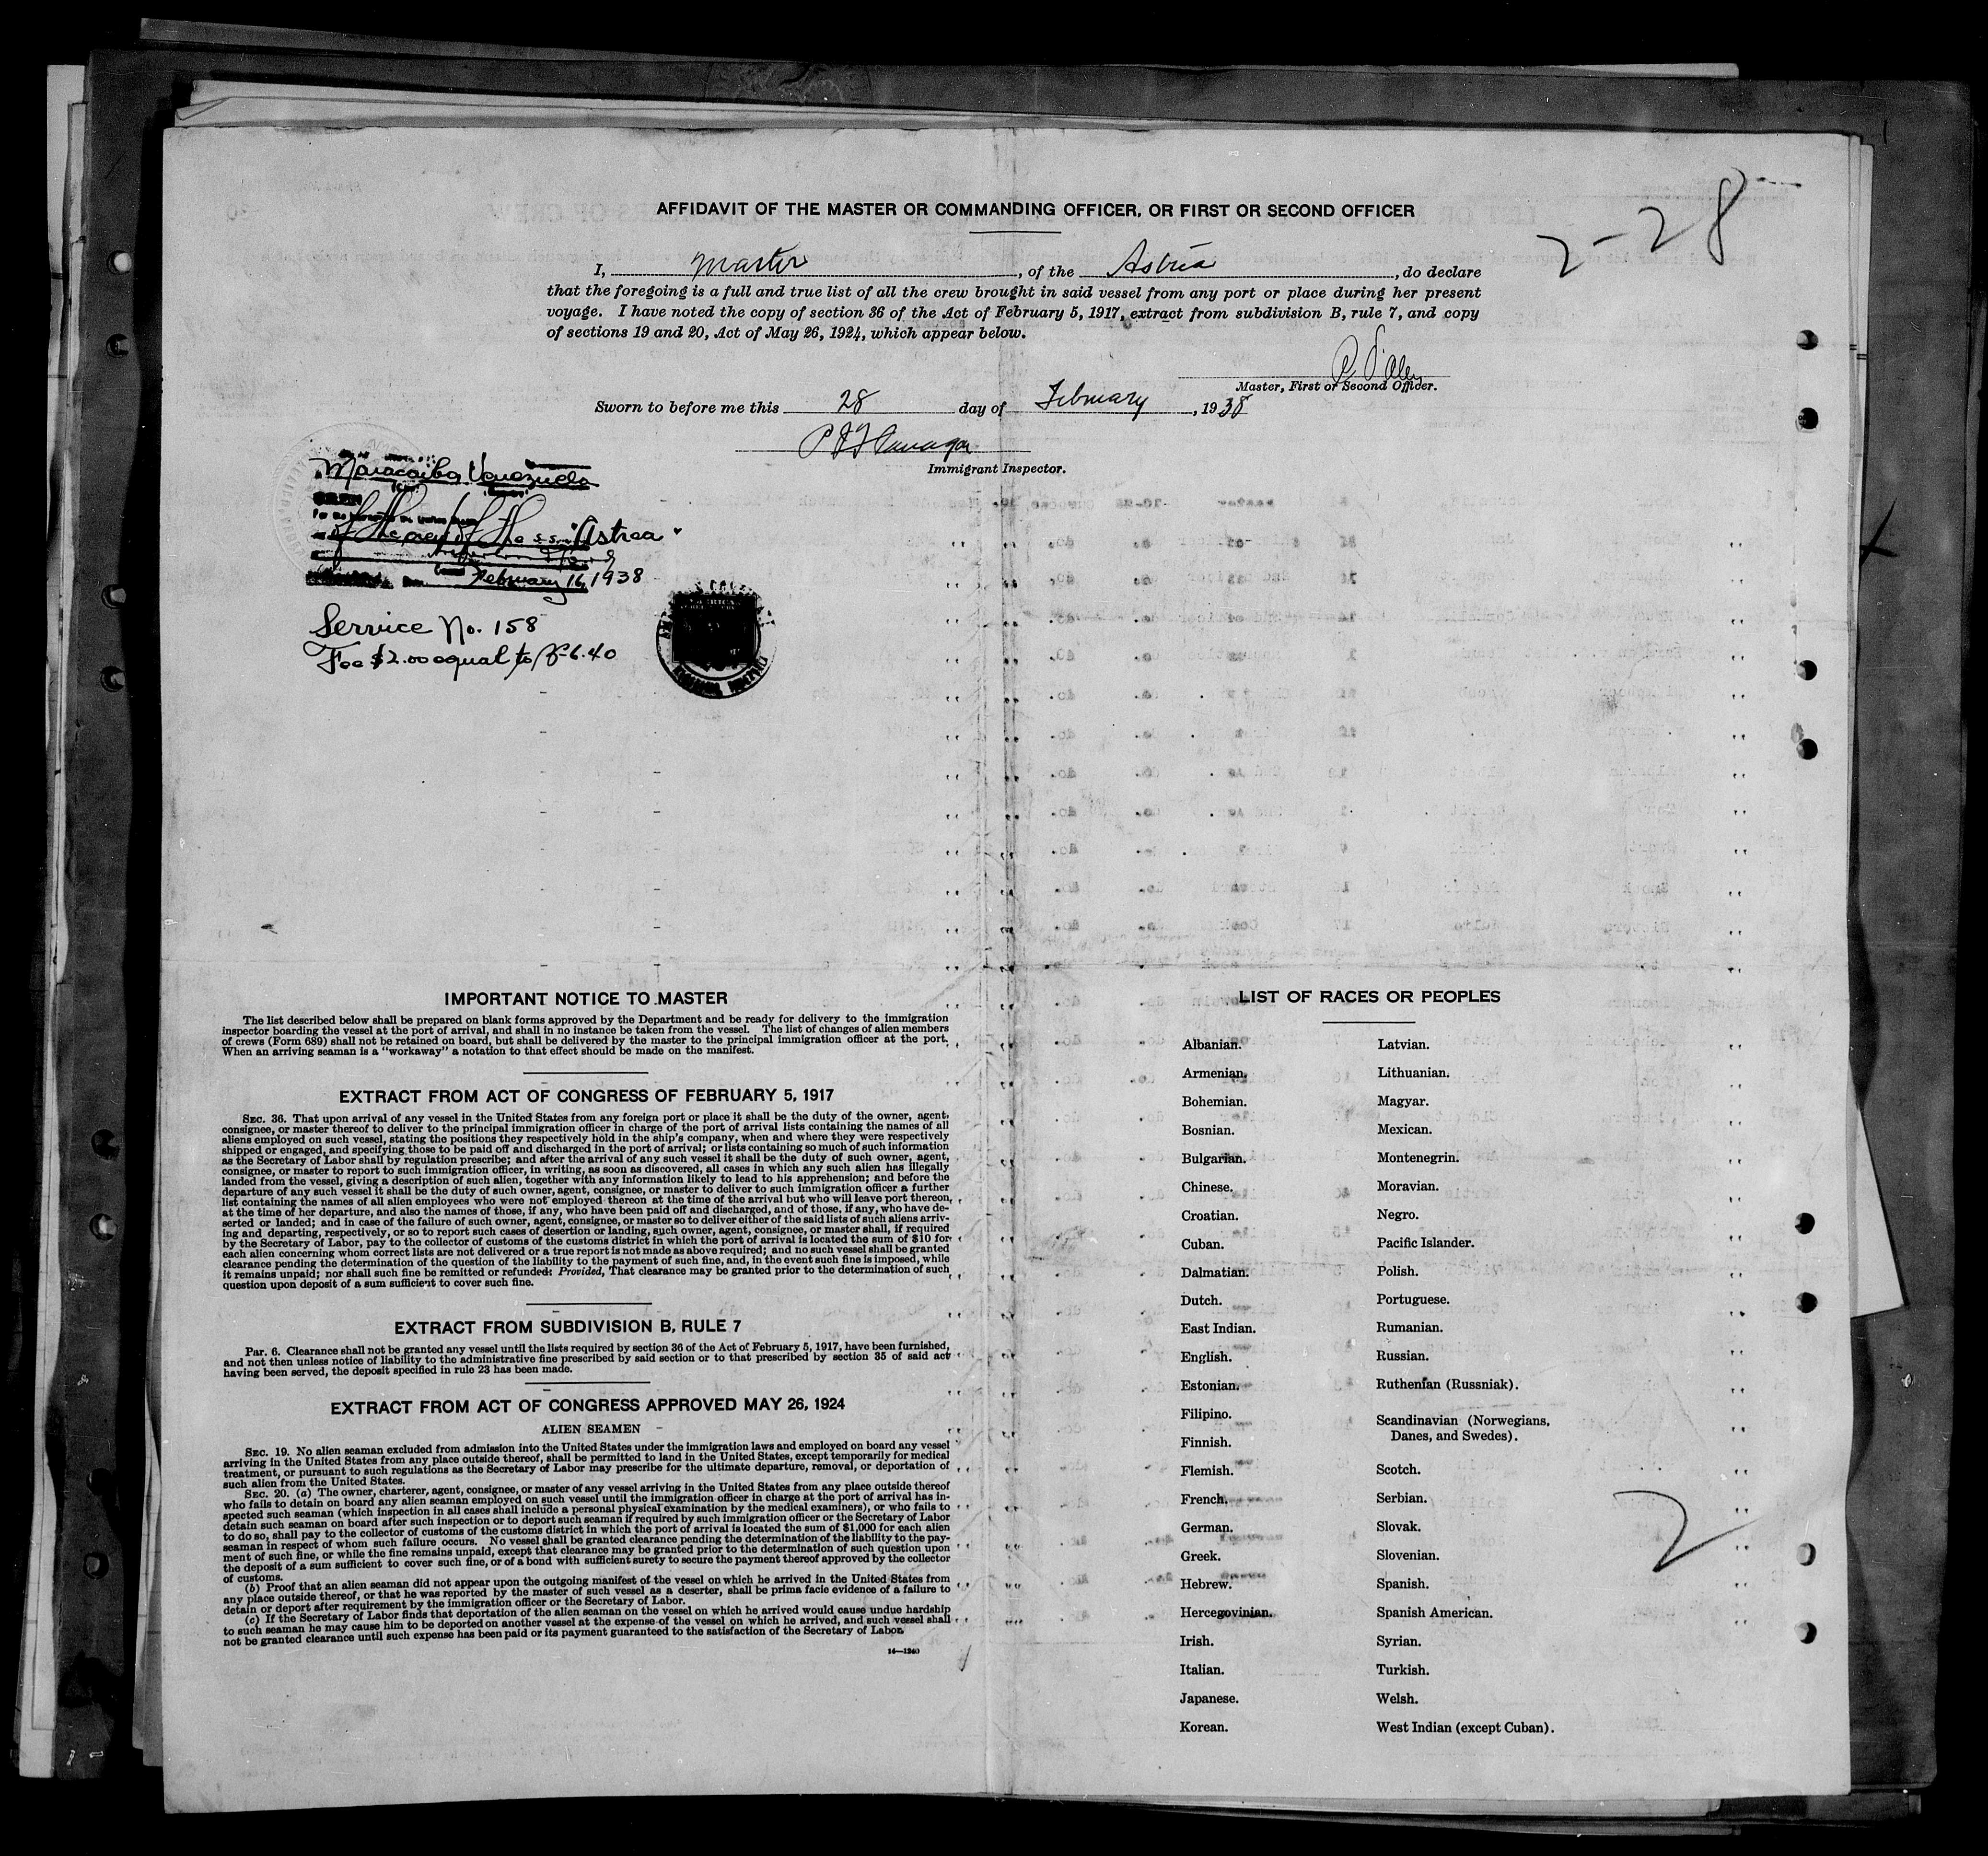 2-28
AFFIDAVIT OF THE MASTER OR COMMANDING OFFICER, OR FIRST OR SECOND OFFICER
I, Master, of the Astrea, do declare
that the foregoing is a full and true list of all the crew brought in said vessel from any port or place during her present
voyage. I have noted the copy of section 36 of the Act of February 5, 1917, extract from subdivision B, rule 7, and copy
of sections 19 and 20, Act of May 26, 1924, which appear below.
Master, First or Second Officer.
Sworn to before me this 28 day of February, 1938
Immigrant Inspector.
Maracaibo Venezuela
of the crew of the s.s. "Astrea"
February 16, 1938
Service No. 158
Fee $2.00 equal to 6.40
IMPORTANT NOTICE TO MASTER
The list described below shall be prepared on blank forms approved by the Department and be ready for delivery to the immigration
inspector boarding the vessel at the port of arrival, and shall in no instance be taken from the vessel. The list of changes of alien members
of crews (Form 689) shall not be retained on board, but shall be delivered by the master to the principal immigration officer at the port.
When an arriving seaman is a "workaway" a notation to that effect should be made on the manifest.
EXTRACT FROM ACT OF CONGRESS OF FEBRUARY 5, 1917
SEC. 36. That upon arrival of any vessel in the United States from any foreign port or place it shall be the duty of the owner, agent,
consignee, or master thereof to deliver to the principal immigration officer in charge of the port of arrival lists containing the names of all
aliens employed on such vessel, stating the positions they respectively hold in the ship's company, when and where they were respectively
shipped or engaged, and specifying those to be paid off and discharged in the port of arrival; or lists containing so much of such information
as the Secretary of Labor shall by regulation prescribe; and after the arrival of any such vessel it shall be the duty of such owner, agent,
consignee, or master to report to such immigration officer, in writing, as soon as discovered, all cases in which any such alien has illegally
landed from the vessel, giving a description of such alien, together with any information likely to lead to his apprehension; and before the
departure of any such vessel it shall be the duty of such owner, agent, consignee, or master to deliver to such immigration officer a further
list containing the names of all alien employees who were not employed thereon at the time of the arrival but who will leave port thereon,
at the time of her departure, and also the names of those, if any, who have been paid off and discharged, and of those, if any, who have de-
serted or landed; and in case of the failure of such owner, agent, consignee, or master so to deliver either of the said lists of such aliens arriv-
ing and departing, respectively, or so to report such cases of desertion or landing, such owner, agent, consignee, or master shall, if required
by the Secretary of Labor, pay to the collector of customs of the customs district in which the port of arrival is located the sum of $10 for
each alien concerning whom correct lists are not delivered or a true report is not made as above required; and no such vessel shall be granted
clearance pending the determination of the question of the liability to the payment of such fine, and, in the event such fine is imposed, while
it remains unpaid; nor shall such fine be remitted or refunded: Provided, That clearance may be granted prior to the determination of such
question upon deposit of a sum sufficient to cover such fine.
EXTRACT FROM SUBDIVISION B, RULE 7
Par. 6. Clearance shall not be granted any vessel until the lists required by section 36 of the Act of February 5, 1917, have been furnished,
and not then unless notice of liability to the administrative fine prescribed by said section or to that prescribed by section 35 of said act
having been served, the deposit specified in rule 23 has been made.
EXTRACT FROM ACT OF CONGRESS APPROVED MAY 26, 1924
ALIEN SEAMEN
SEC. 19. No alien seaman excluded from admission into the United States under the immigration laws and employed on board any vessel
arriving in the United States from any place outside thereof, shall be permitted to land in the United States, except temporarily for medical
treatment, or pursuant to such regulations as the Secretary of Labor may prescribe for the ultimate departure, removal, or deportation of
such alien from the United States.
SEC. 20. (a) The owner, charterer, agent, consignee, or master of any vessel arriving in the United States from any place outside thereof
who fails to detain on board any alien seaman employed on such vessel until the immigration officer in charge at the port of arrival has in-
spected such seaman (which inspection in all cases shall include a personal physical examination by the medical examiners), or who fails to
detain such seaman on board after such inspection or to deport such seaman if required by such immigration officer or the Secretary of Labor
to do so, shall pay to the collector of customs of the customs district in which the port of arrival is located the sum of $1,000 for each alien
seaman in respect of whom such failure occurs. No vessel shall be granted clearance pending the determination of the liability to the pay-
ment of such fine, or while the fine remains unpaid, except that clearance may be granted prior to the determination of such question upon
the deposit of a sum sufficient to cover such fine, or of a bond with sufficient surety to secure the payment thereof approved by the collector
of customs.
(b) Proof that an alien seaman did not appear upon the outgoing manifest of the vessel on which he arrived in the United States from
any place outside thereof, or that he was reported by the master of such vessel as a deserter, shall be prima facie evidence of a failure to
detain or deport after requirement by the immigration officer or the Secretary of Labor.
(c) If the Secretary of Labor finds that deportation of the alien seaman on the vessel on which he arrived would cause undue hardship
to such seaman he may cause him to be deported on another vessel at the expense of the vessel on which he arrived, and such vessel shall
not be granted clearance until such expense has been paid or its payment guaranteed to the satisfaction of the Secretary of Labor.
14—1240
LIST OF RACES OR PEOPLES
Albanian.
Armenian.
Bohemian.
Bosnian.
Bulgarian.
Chinese.
Croatian.
Cuban.
Dalmatian.
Dutch.
East Indian.
English.
Estonian.
Filipino.
Finnish.
Flemish.
French.
German.
Greek.
Hebrew.
Hercegovinian.
Irish.
Italian.
Japanese.
Korean.
Latvian.
Lithuanian.
Magyar.
Mexican.
Montenegrin.
Moravian.
Negro.
Pacific Islander.
Polish.
Portuguese.
Rumanian.
Russian.
Ruthenian (Russniak).
Scandinavian (Norwegians,
Danes, and Swedes).
Scotch.
Serbian.
Slovak.
Slovenian.
Spanish.
Spanish American.
Syrian.
Turkish.
Welsh.
West Indian (except Cuban).
2